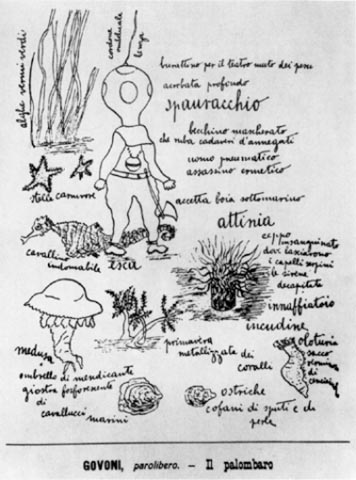 alghe vermi verdi
cordone
ombelicale
lunga
burattino per il teatro muto dei pesci
acrobata profondo
spauracchio
becchino mascherato
che ruba cadaveri d'annegati
uomo pneumatico
assassino ermetico
stelle carnivore
accetta boia sottomarino
attinia
ceppo
insanguinato
dove lasciarono
i capelli serpini
le sirene
decapitate
cavalluccio
indomabile
esca
innaffiatoio
incudine
medusa
ombrello di mendicante
giostra fosforescente
di
cavallucci marini
primavera
metallizzata dei
coralli
oloturia
sacco
ostriche
cofani di sputi e di
perle
GOVONI, parolibero. – Il palombaro